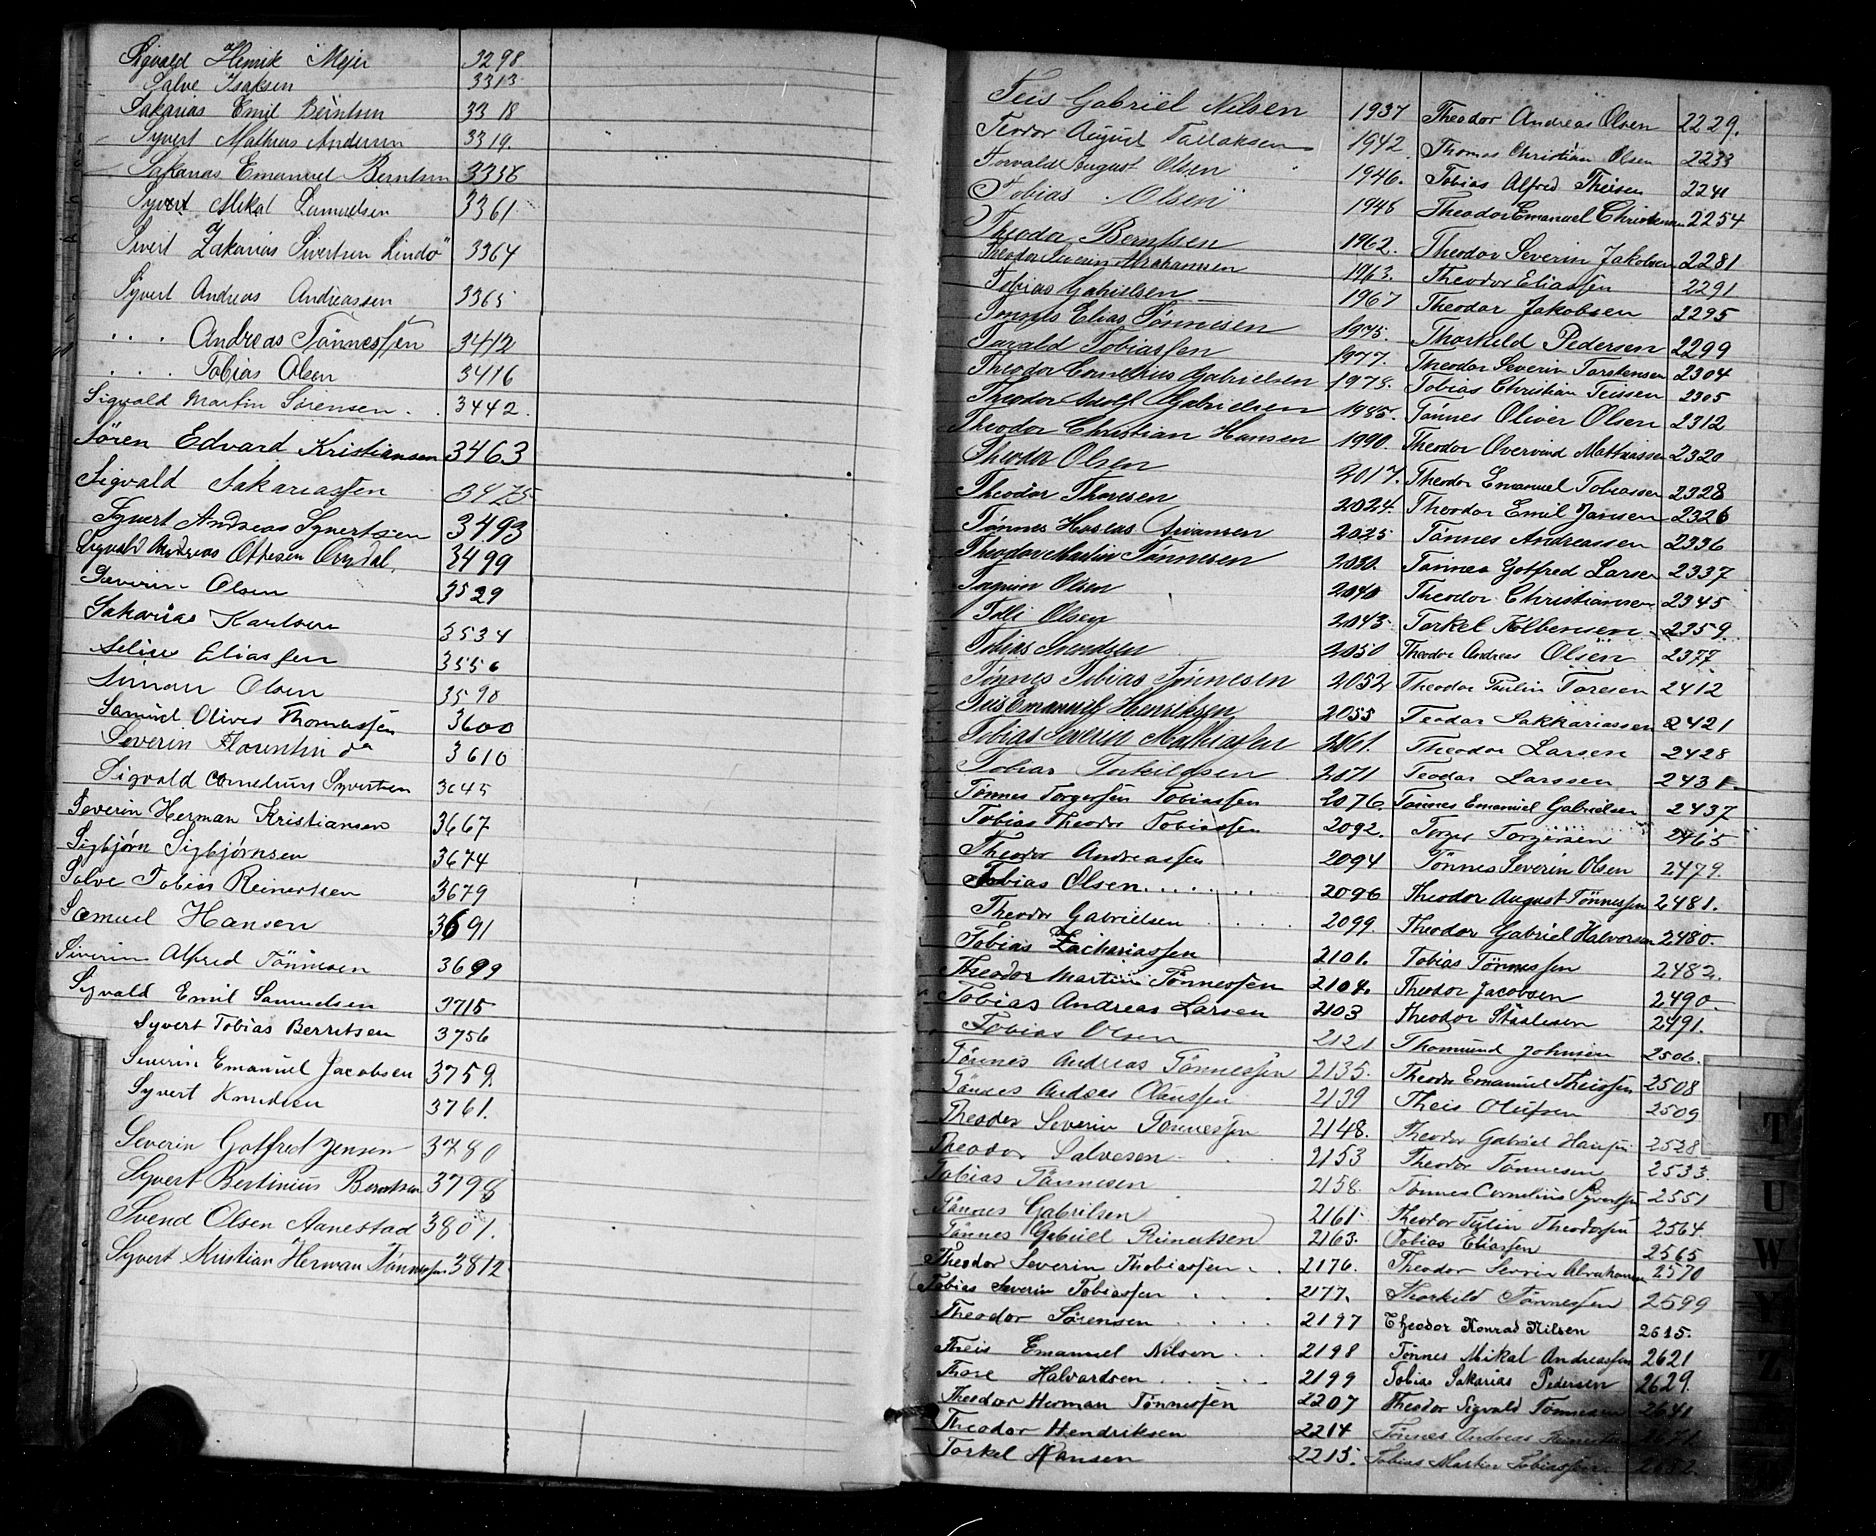 Sigvald Henrik Mejer 3298
Salve Isaksen 3313
Sakarias Emil Berntsen 3318
Syvert Mathias Andersen 3319.
Sakarias Emanuel Berntsen 3338
Syvert Mikal Samuelsen 3361
Sivert Zakarias Sivertsen Lindö 3364
Syvert Andreas Andreassen 3365
. . . Andreas Tönnessen 3412
. . . Tobias Olsen 3416
Sigvald Martin Sörensen . . 3442.
Sören Edvard Kristiansen 3463
Sigvald Sakariassen 3475
Syvert Andreas Syvertsen 3493
Sigvald Andreas Ottesen 3499
Severin Olsen 3529
Sakarias Karlsen 3534
Selius Eliassen 3556
Simon Olsen 3590
Samuel Oliver Thomassen 3600
Severin Florentin do 3610
Sigvald Cornelius Syvertsen 3645
Severin Herman Kristiansen 3667
Sigbjørn Sigbjørnsen 3674
Salve Tobias Reinertsen 3679
Samuel Hansen 3691
Siverin Alfred Tönnesen 3699
Sigvald Emil Samuelsen 3715
Syvert Tobias Berntsen 3756
Severin Emanuel Jacobsen 3759.
Syvert Knudsen 3761.
Severin Gotfred Jensen 3780
Syvert Bertinius Berntsen 3798
Svend Olsen Aanestad 3801.
Syvert Kristian Herman Tönnessen 3812
Teis Gabriel Nilsen 1937
Teodor August Tallaksen 1942
Torvald August Olsen 1946.
Tobias Olsen 1948
Theodor Berntsen 1962.
Theodor Severin Abrahamsen 1963.
Tobias Gabrielsen 1967
Tønnes Elias Tønnesen 1975.
Tarald Tobiassen 1977.
Theodor Cornelius Gabrielsen 1978.
Theodor Adolf Gabrielsen 1985.
Theodor Christian Hansen 1990.
Theodor Olsen 2017.
Theodor Thoresen 2024.
Tønnes Hoseas 2025
Theodor Martin Tønnesen 2030.
Olsen 2040
Tolli Olsen 2043
Tobias Svendsen 2050
Tønnes Tobias Tønnesen 2052
Teis Emanuel Henriksen 2055
Tobias Severin Mathiassen 2061.
Tobias Torkildsen 2071
Tønnes Torgersen Tobiassen 2076.
Tobias Theodor Tobiassen 2092.
Theodor Andreassen 2094
Tobias Olsen . . . . . . . 2096
Theodor Gabrielsen . . . . 2099.
Tobias Zachariassen 2101.
Theodor Martin Tønnessen 2104.
Tobias Andreas Larsen 2103
Tobias Olsen 2121
Tønnes Andreas Tønnessen 2135.
Tønnes Andreas Olaussen 2139
Theodor Severin Tønnessen 2148.
Theodor Salvesen 2153
Tobias Tønnesen 2158.
Tønnes Gabrilsen 2161
Tønnes Gabriel Reinertsen 2163.
Theodor Severin Thobiassen . . 2176.
Tobias Severin Tobiassen . . . 2177.
Theodor Sørensen . . . . . 2197
Theis Emanuel Nilsen . . 2198
Thore Halvardsen . . . . . 2199
Theodor Herman Tønnessen 2207
Theodor Hendriksen 2214
Torkel Hansen 2215.
Theodor Andreas Olsen 2229.
Thomas Christian Olsen 2233
Tobias Alfred Theisen 2241
Theodor Emanuel Christensen 2254
Theodor Severin Jakobsen 2281
Theodor Eliassen 2291
Theodor Jakobsen 2295
Thorkild Pedersen 2299
Theodor Severin Torstensen 2304
Tobias Christian Teissen 2305
Tønnes Oliver Olsen 2312
Theodor Mathiassen 2320
Theodor Emanuel Tobiassen 2328
Theodor Emil Jansen 2326
Tønnes Andreassen 2336
Tønnes Gotfred Larsen 2337
Theodor Christiansen 2345
Torkel Kolbensen 2359.
Theodor Andreas Olsen 2377
Theodor Paulin Toresen 2412
Teodor Sakkariassen 2421
Theodor Larsen 2428
Teodor Larssen 2431
Tønnes Emanuel Gabrielsen 2437
Torger Torgersen 2465
Tønnes Severin Olsen 2479.
Theodor August Tønnessen 2481.
Theodor Gabriel Halvorsen 2480.
Tobias Tønnessen 2482.
Theodor Jacobsen 2490
Theodor Staalesen 2491.
Thomund Johnsen 2506.
Theodor Emanuel Theissen 2508
Theis Olufsen 2509
Theodor Gabriel Hansen 2528
Theodor Tønnesen 2533.
Tønnes Cornelius Syvertsen 2551
Theodor Theodorsen 2564.
Tobias Eliassen 2565
Theodor Severin Abrahamsen 2570
Thorkild Tønnessen 2599
Theodor Konrad Nilsen 2615.
Tønnes Mikal Andreassen 2621
Tobias Sakarias Pedersen 2629.
Theodor Sigvald Tønnesen 2641
Tønnes Andreas
Tobias Martin Tobiassen 2652.
T
U
W
Y
Z